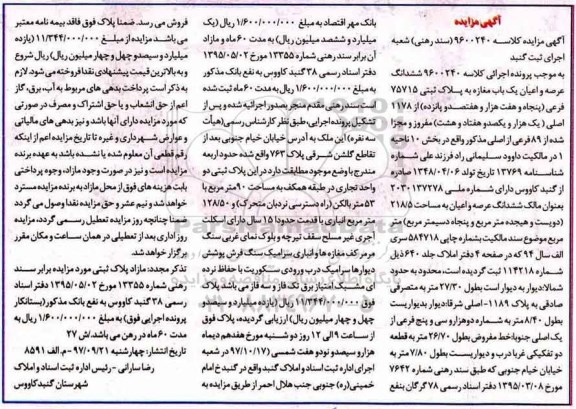 آگهی مزایده
آگهی مزایده کلاسه ۹۶۰۰۲۴۰ (سند رهنی) شعبه
اجرای ثبت گنبد
به موجب پرونده اجرائی کلاسه ۹۶۰۰۲۴۰ ششدانگ
عرصه و اعیان یک باب مغازه به پلاک ثبتی ۷۵۷۱۵
فرعی (پنجاه و هفت هزار و هفتصد و پانزده) از ۱۱۷۸
اصلی (یک هزار و یکصد و هفتاد و هشت) مفروز و مجزا
شده از ۸۹ فرعی از اصلی مذکور واقع در بخش ۱۰ ناحیه
۱ در مالکیت داوود سلیمانی راد فرزند علی شماره
شناسنامه ۱۳۷۶۹ تاریخ تولد ۱۳۴۸/۰۴/۰۶ صادره
از گنبد کاووس دارای شماره ملی ۲۰۳۰۱۳۷۲۷۸
بعنوان مالک ششدانگ عرصه و اعیان به مساحت ۲۱۸/۵
(دویست و هیجده متر مربع و پنجاه دسیمتر مربع) متر
مربع موضوع سند مالکیت بشماره چاپی ۵۸۴۷۱۸ سری
الف سال ۹۴ که در صفحه ۴ دفتر املاک جلد ۶۴۰ ذیل
شماره ۱۱۴۲۱۸ ثبت گردیده است، محدود به حدود
شمالا: دیوار به دیوار است بطول ۲۷/۳۰ متر به متصرفی
صادقی به پلاک ۱۱۸۹- اصلی شرقا: دیوار بدیوار یست
بطول ۸/۴۰ متر به شماره دو هزار و سی و پنج فرعی از
یک اصلی جنوبا: خط مفروض بطول ۲۶/۷۰ متر به قطعه
دو تفکیکی غربا درب و دیواریست بطول ۷/۸۰ متر به
خیابان خیام جنوبی که طبق سند رهنی شماره ۷۶۴۲
مورخ ۱۳۹۵/۰۳/۰۸ دفتر اسناد رسمی ۷۸ گرگان بنفع
بانک مهر اقتصاد به مبلغ ۱/۶۰۰/۰۰۰/۰۰۰ ریال (یک
میلیارد و ششصد میلیون ریال) به مدت ۶۰ ماه و مازاد
آن برابر سند رهنی شماره ۱۳۳۵۵ مورخ ۱۳۹۵/۰۵/۰۲
دفتر اسناد رسمی ۳۸ گنبد کاووس به نفع بانک مذکور
به مبلغ ۱/۶۰۰/۰۰۰/۰۰۰ ریال به مدت ۶۰ ماه ثبت شده
است سند رهنی مقدم منجر بصدور اجرائیه شده و پس از
تشکیل پرونده اجرایی، طبق نظر کارشناس رسمی (هیأت
سه نفره) این ملک به آدرس خیابان خیام جنوبی بعد از
تقاطع گلشن شرقی پلاک ۷۶۳ واقع شده حدود اربعه
مندرج با وضع موجود مطابقت دارد در این پلاک ثبتی دو
واحد تجاری در طبقه همکف به مساحت ۹۰ متر مربع با
۵۳ متر بالکن (راه دسترسی نردبان متحرک) و ۱۲۸/۵۰
متر مربع انباری با قدمت حدود ۱۵ سال دارای اسکلت
آجری غیر مسلح سقف تیرچه و بلوک نمای غربی سنگ
مرمر کف مغازه ها و انباری سرامیک سنگ فرش پوشش
دیوارها سرامیک درب ورودی سکوریت با حفاظ نرده
ای مشبک امتیاز برق تک فاز و سه فاز می باشد پلاک
فوق ۱۱/۳۴۴/۰۰۰/۰۰۰ ریال (یازده میلیارد و سیصد و
چهل و چهار میلیون ریال) ارزیابی گردیده، پلاک فوق
از ساعت ۹ الی ۱۲ روز دو شنبه مورخ هفدهم دیماه
هزار و سیصد و نود و هفت شمسی (۹۷/۱۰/۱۷) در شعبه
اجرای اداره ثبت اسناد و املاک گنبد واقع در گنبد خ امام
خمینی(ره) جنوبی جنب هلال احمر از طریق مزایده به
فروش می رسد. ضمنا پلاک فوق فاقد بیمه نامه معتبر
می باشد مزایده از مبلغ ۱۱/۳۴۴/۰۰۰/۰۰۰ (یازده
میلیارد و سیصد و چهل و چهار میلیون ریال) ریال شروع
و به بالاترین قیمت پیشنهادی نقدا فروخته می شود. لازم
به ذکر است پرداخت بدهی های مربوط به آب، برق، گاز
اعم از حق انشعاب و یا حق اشتراک و مصرف در صورتی
که مورد مزایده دارای آنها باشد و نیز بدهی های مالیاتی
و عوارض شهرداری و غیره تا تاریخ مزایده اعم از اینکه
رقم قطعی آن معلوم شده یا نشده باشد به عهده برنده
مزایده است و نیز در صورت وجود مازاد، وجوه پرداختی
بابت هزینه های فوق از محل مازاد به برنده مزایده مسترد
خواهد شد و نیم عشر و حق مزایده نقدا وصول می گردد
ضمنا چنانچه روز مزایده تعطیل رسمی گردد، مزایده
روز اداری بعد از تعطیلی در همان ساعت و مکان مقرر
برگزار خواهد شد.
تذکر مجدد: مازاد پلاک ثبتی مورد مزایده برابر سند
رهنی شماره ۱۳۳۵۵ مورخ ۱۳۹۵/۰۵/۰۲ دفتر اسناد
رسمی ۳۸ گنبد کاووس به نفع بانک مذکور (بستانکار
پرونده اجرایی فوق) به مبلغ ۱/۶۰۰/۰۰۰/۰۰۰ ریال به
مدت ۶۰ ماه در رهن می باشد/ش ۲۷
تاریخ انتشار: چهارشنبه ۹۷/۰۹/۲۱ -م.الف ۸۵۹۱
رضا سارانی- رئیس اداره ثبت اسناد و املاک
شهرستان گنبد کاووس